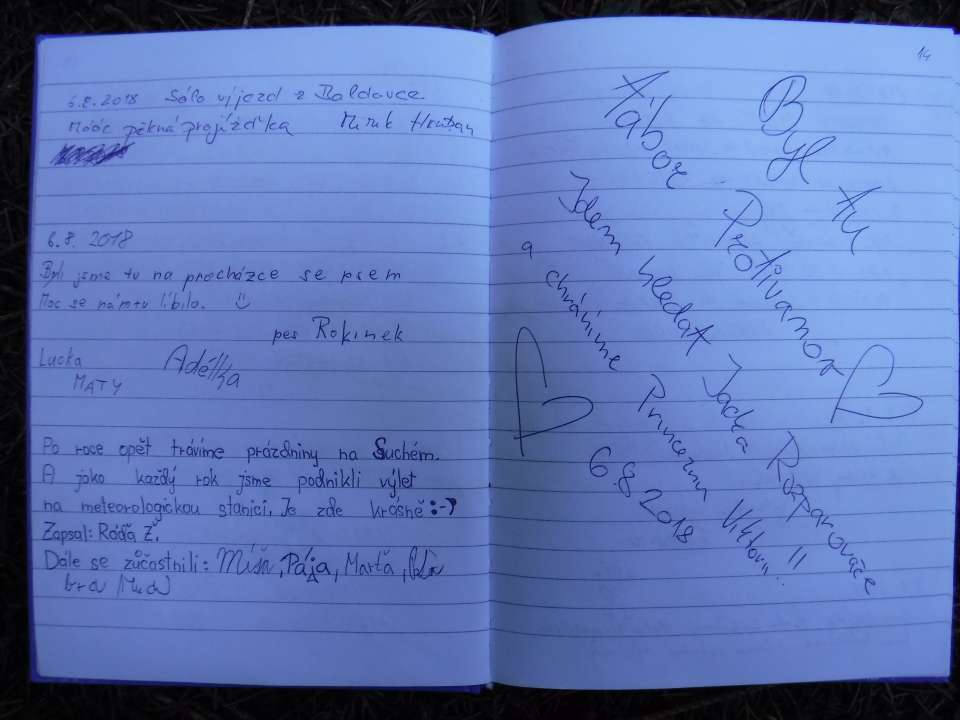 6.8.2018 Sólo výjezd z Baldovce
Móóc pěkná projížďka Mirek
6.8. 2018
Byli jsme tu na procházce se psem
Moc se nám tu líbilo. :)
pes Rokinek
Lucka Adélka
MATY
Po roce opět trávíme prázdniny na Suchém.
A jako každý rok jsme podnikli výlet
na meteorologickou stanici. Je zde krásně :-)
Zapsal: Ráďa Ž.
Dále se zůčastnili: Míša, Pája, Marťa,
14
Byl tu
Tábor Protivanov
Jdem hledat Jacka Rozparovače
a chráníme Princeznu !!
6.8 2018